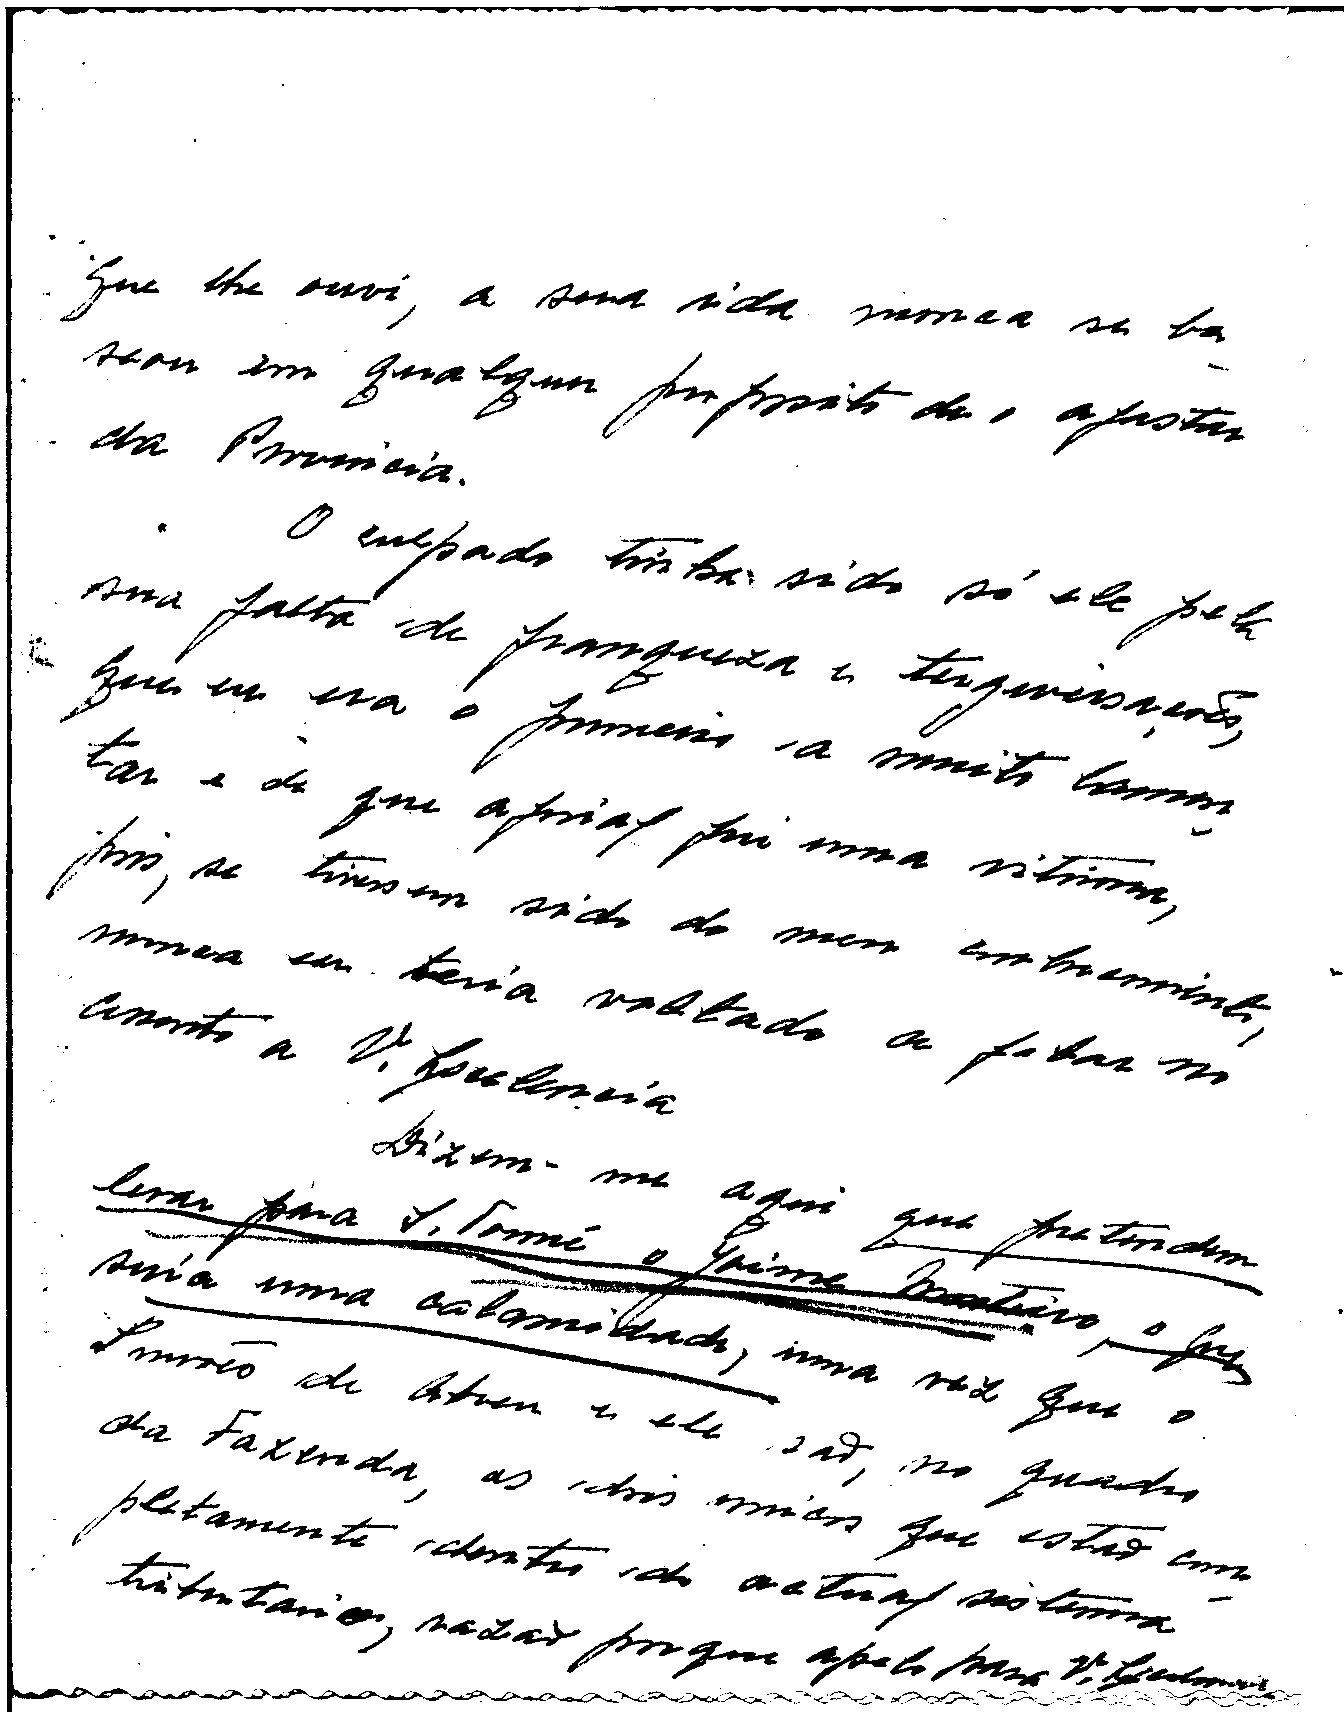 que lhe ouvi, a sua vida nunca se ba-
seou em qualquer proposito de o afastar
da Provincia.
O culpado tinha sido só ele pela
sua falta de franqueza e tergiversações,
que eu era o primeiro a muito lamen-
tar e de que afinal fui uma vitima,
pois, se tivessem sido do meu conhecimento,
nunca eu teria voltado a falar no
assunto a V. Excelencia
Dizem-me aqui que pretendem
levar para S. Tomé o Jaime Monteiro, o que
seria uma calamidade, uma vez que o
Simão de Abreu e ele são, no quadro
da Fazenda, os dois unicos que estão com-
pletamente dentro do actual sistema
tributario, razão porque apelo para V. Excelencia